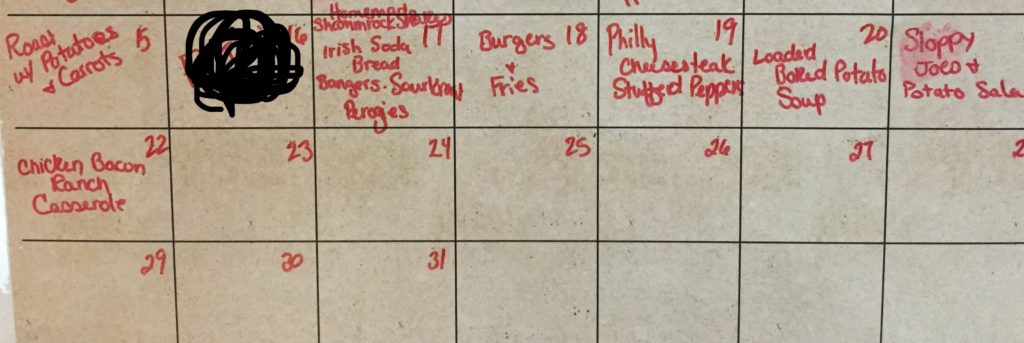 Roast 15
w/ Potatoes
& Carrots
16
Homemade
Shammrock Shakes
17
Irish Soda
Bread
Bangers. Saurkraut
Perogies
Burgers 18
&
Fries
Philly 19
Cheesesteak
Stuffed Peppers
20
Loaded
Baked Potato
Soup
Sloppy
Joes &
Potato Sala
22
Chicken Bacon
Ranch
Casserole
23
24
25
26
27
2
29
30
31